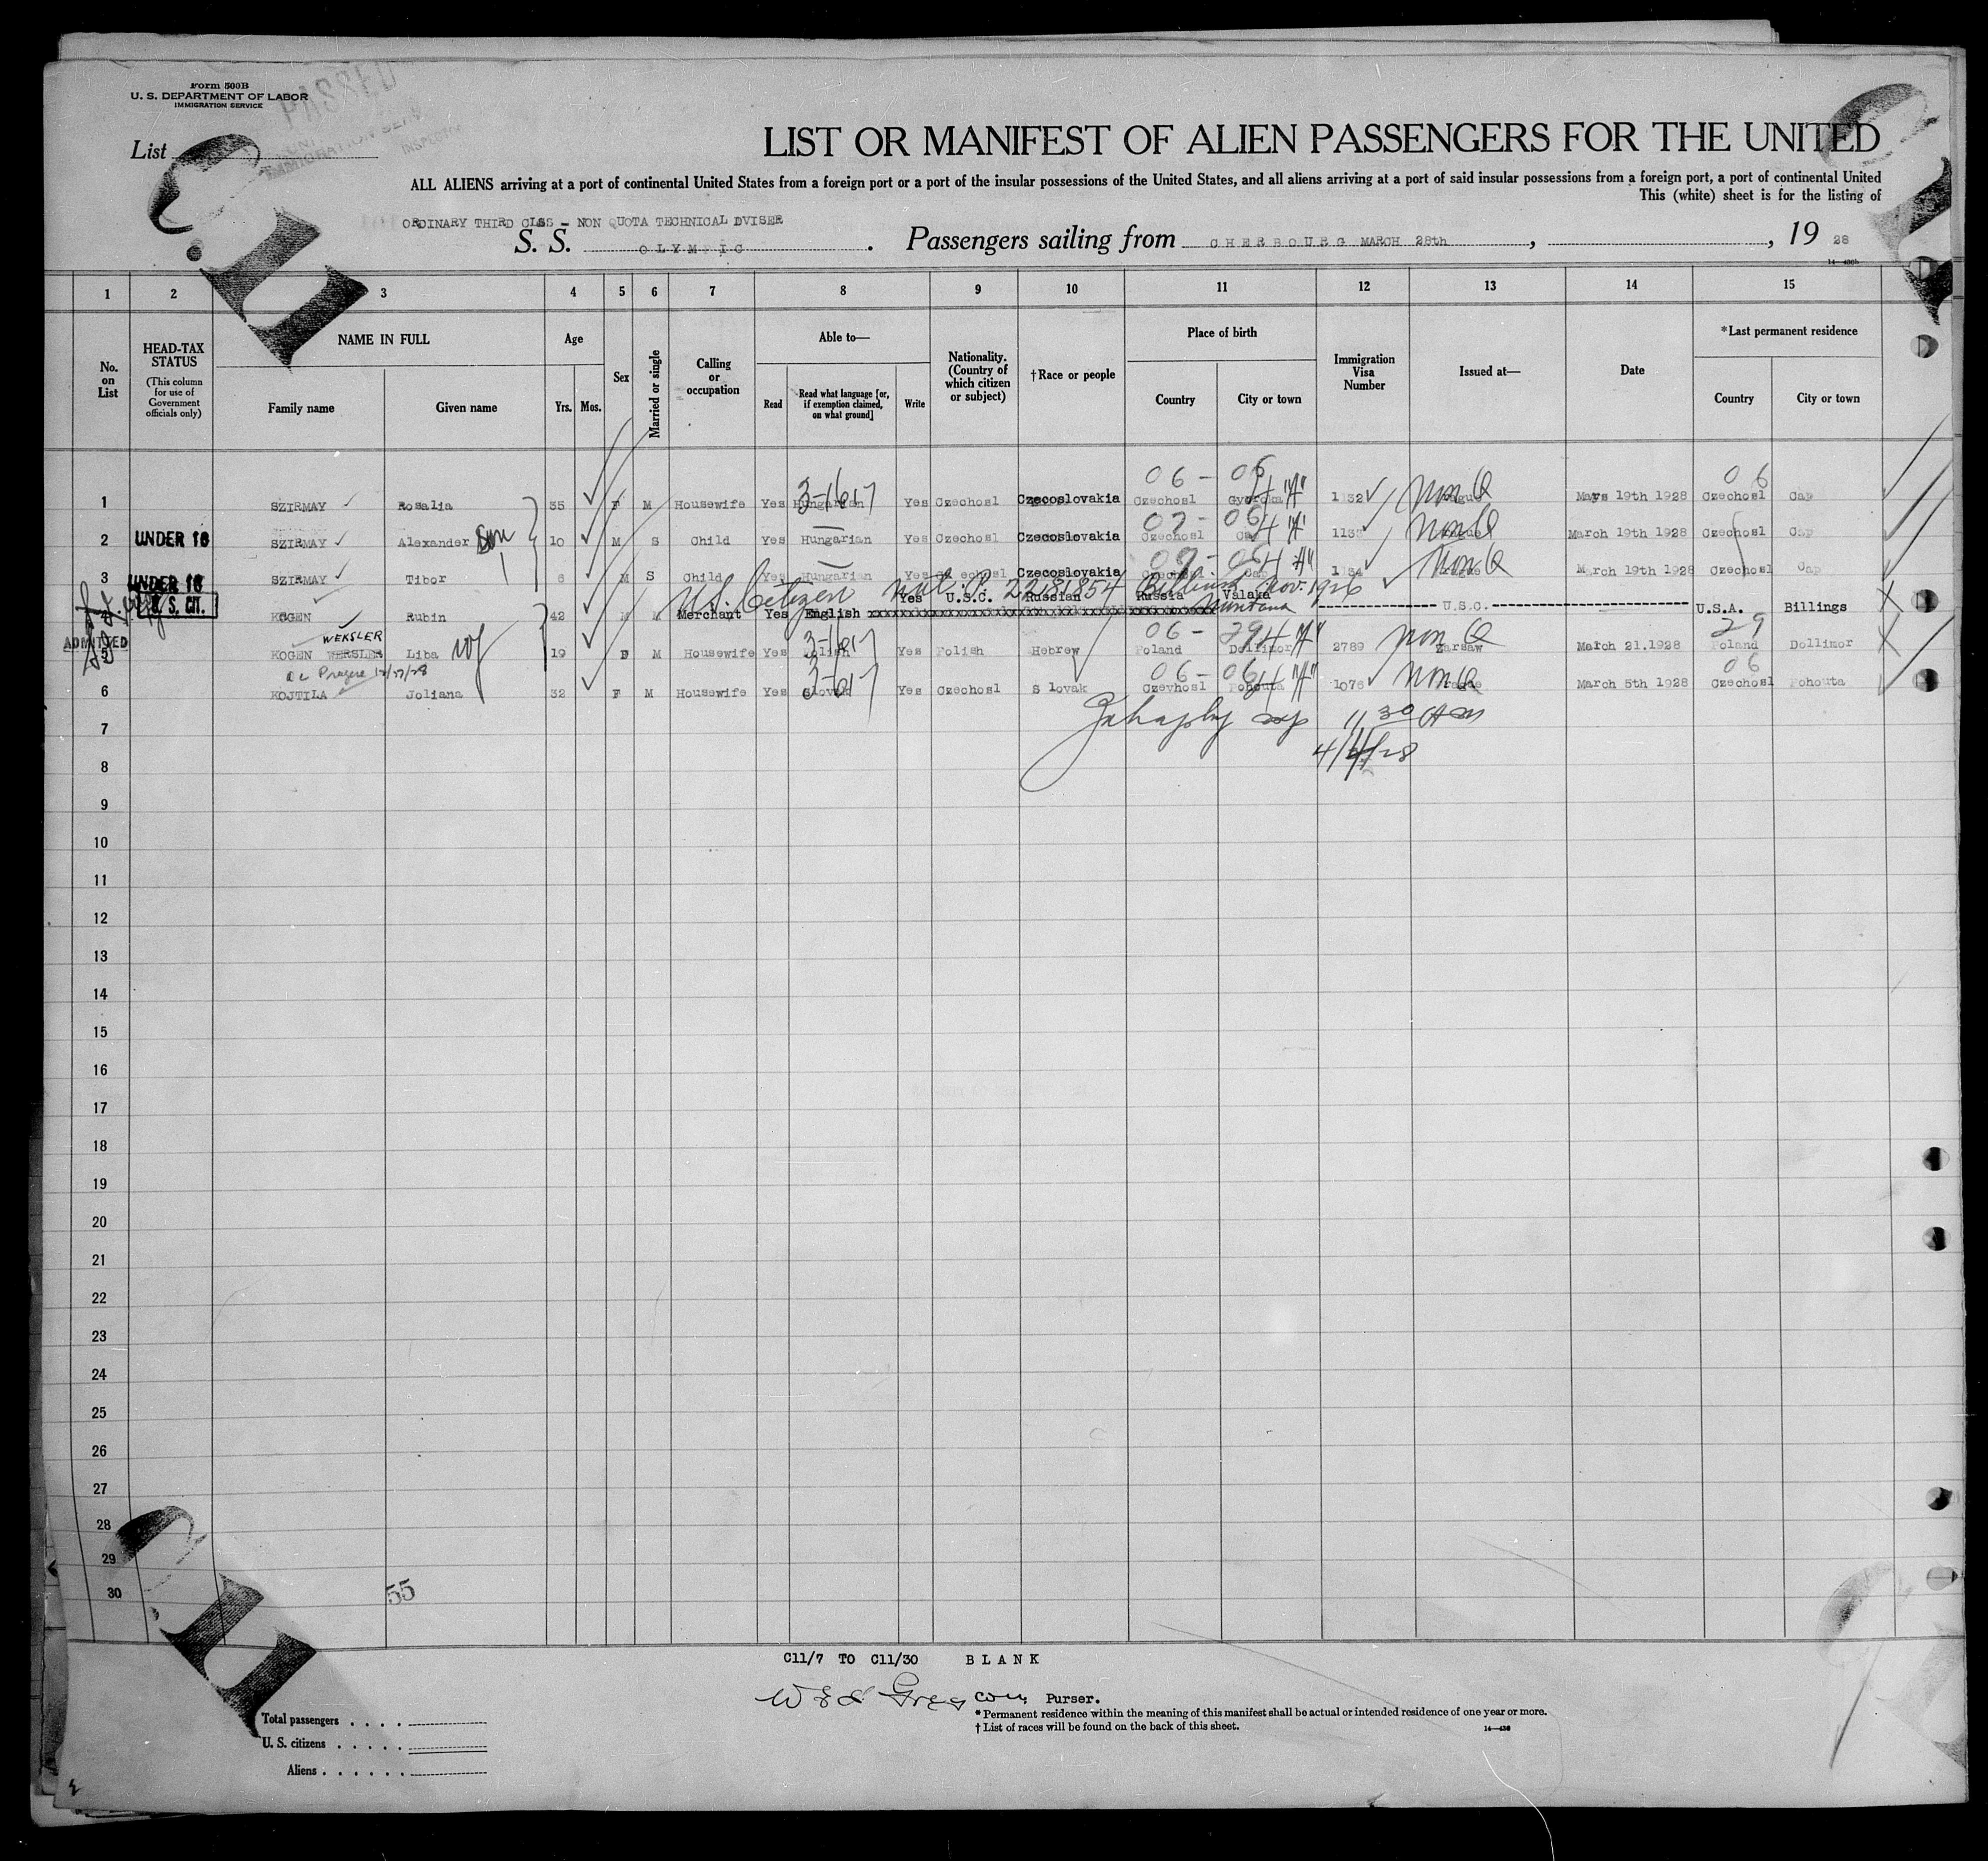 Form 500B
U. S. DEPARTMENT OF LABOR
IMMIGRATION SERVICE
List
LIST OR MANIFEST OF ALIEN PASSENGERS FOR THE UNITED
ALL ALIENS arriving at a port of continental United States from a foreign port or a port of the insular possessions of the United States, and all aliens arriving at a port of said insular possessions from a foreign port, a port of continental United
This (white) sheet is for the listing of
ORDINARY THIRD CLSS - NON QUOTA TECHNICAL DVISER
S. S. OLYMPIC. Passengers sailing from CHERBOURG MARCH 28th, , 19 28
1 2 3 4 5 6 7 8 9 10 11 12 13 14 15
No. on List HEAD-TAX STATUS (This column for use of Government officials only) NAME IN FULL Family name Given name Age Yrs. Mos. Sex Married or single Calling or occupation Able to— Read Read what language [or, if exemption claimed, on what ground] Write Nationality. (Country of which citizen or subject) †Race or people Place of birth Country City or town Immigration Visa Number Issued at— Date *Last permanent residence Country City or town
06 - 06 06
1 SZIRMAY Rosalia 35 F M Housewife Yes Hungarian 3-1617 Yes Czechosl Czecoslovakia Czechosl 4 "A" 1132 Non Q 19th 1928 Czechosl Cap
2 UNDER 16 SZIRMAY Alexander Son 10 M S Child Yes Hungarian Yes Czechosl Czecoslovakia Czechosl 4 "A" 1133 Non Q March 19th 1928 Czechosl Cap
3 UNDER 16 SZIRMAY Tibor 6 M S Child Yes Hungarian Yes Czechosl Czecoslovakia Cap 4 "A" 1134 Non Q March 19th 1928 Czechosl Cap
U.S. Citizen 2281854 Billings Nov. 1926 Montana
U. S. CIT. KOGEN Rubin 42 M M Merchant Yes English Yes U.S.C. Russian Russia Valaka U.S.C. U.S.A. Billings
WEKSLER
06 - 29 29
ADMITTED 5 KOGEN WERSLER Liba wf 19 F M Housewife Yes Polish 3-1617 Yes Polish Hebrew Poland Dollimor 4 "A" 2789 Non Q Warsaw March 21.1928 Poland Dollimor
06 - 06 06
6 KOJTILA Joliana 32 F M Housewife Yes Slovak Yes Czechosl S lovak Czevhosl Pohouta 4 "A" 1076 Non Q March 5th 1928 Czechosl Pohouta
7 11 30 AM
4/4/28
8
9
10
11
12
13
14
15
16
17
18
19
20
21
22
23
24
25
26
27
28
29
30
55
C11/7 TO C11/30 BLANK
Purser.
* Permanent residence within the meaning of this manifest shall be actual or intended residence of one year or more.
† List of races will be found on the back of this sheet.
Total passengers . . . .
U. S. citizens . . . . .
Aliens . . . . . .